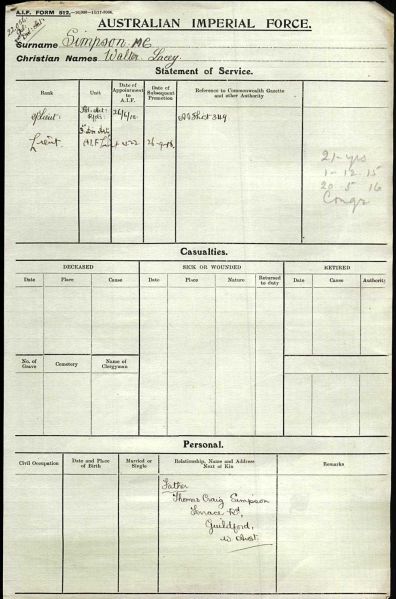 A.I.F. FORM 512.
AUSTRALIAN IMPERIAL FORCE.
Surname Simpson MC
Christian Names Walter Lacey
Statement of Service.
Rank
Unit
Date of Appointment to A.I.F.
Date of Subsequent Promotion
Reference to Commonwealth Gazette and other Authority
2/Lieut:
Lieut
21-yrs
1-12-15
20.5.16
Congr
Casualties.
DECEASED
SICK OR WOUNDED
RETIRED
Date
Place
Cause
Date
Place
Nature
Returned to duty
Date
Cause
Authority
No. of Grave
Cemetery
Name of Clergyman
Personal.
Civil Occupation
Date and Place of Birth
Married or Single
Relationship, Name and Address Next of Kin
Remarks
Father
Thomas Craig Simpson
Terrace Rd,
Guildford,
W. Aust.